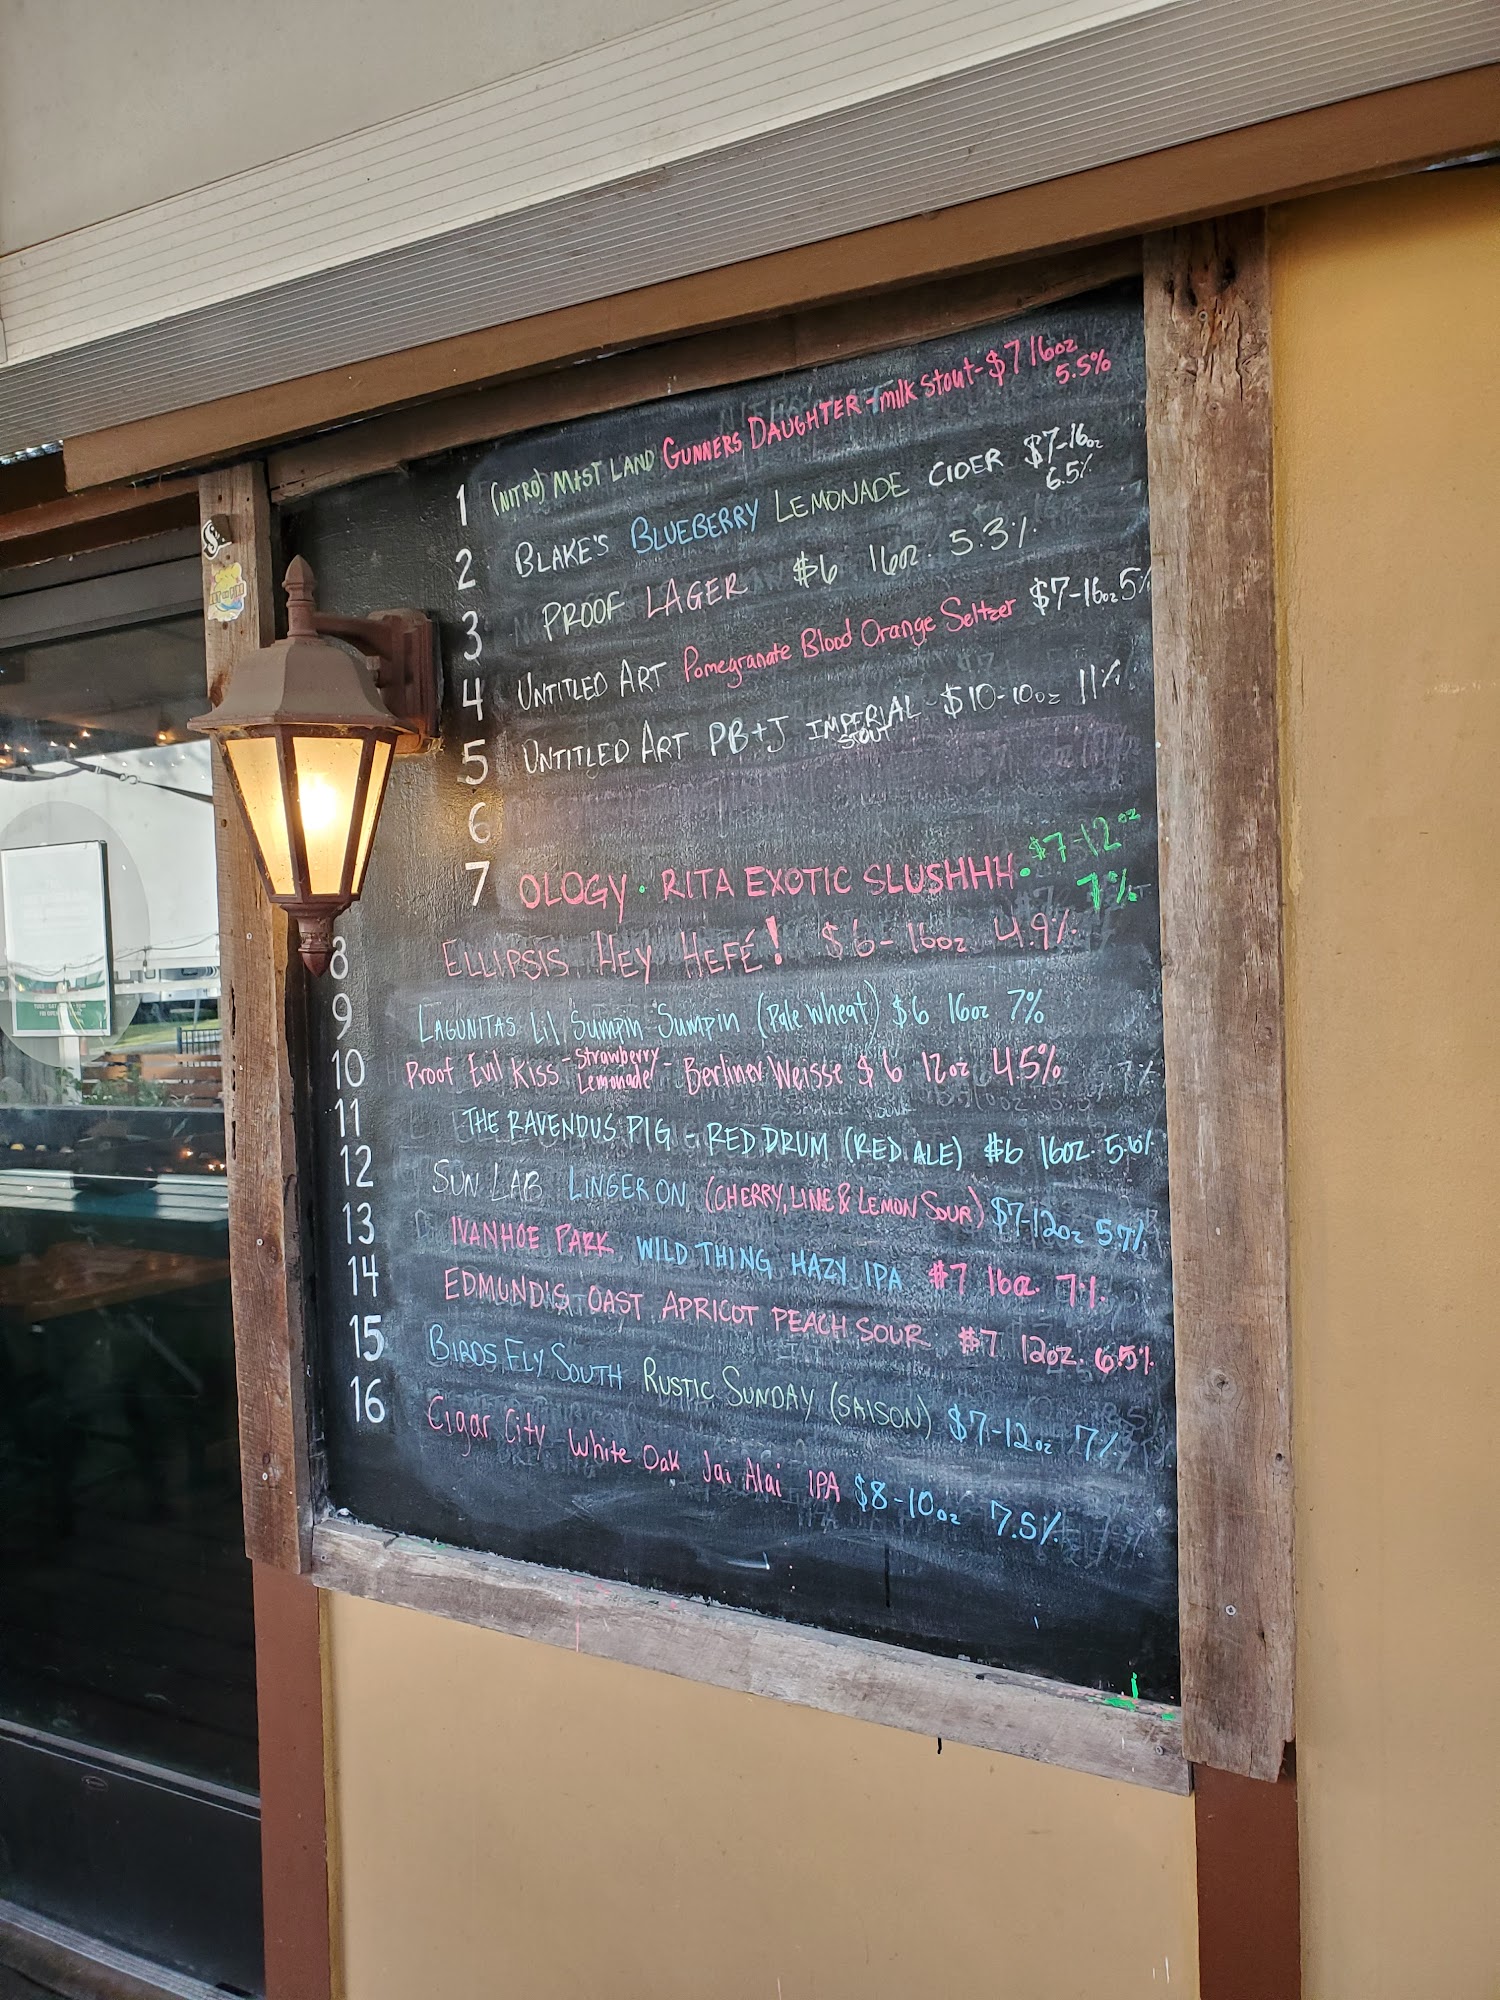 1 (NITRO) MAST LAND GUNNERS DAUGHTER - milk stout - $7 16oz
5.5%
2 BLAKE'S BLUEBERRY LEMONADE CIDER $7-16oz
6.5%
3 PROOF LAGER $6 16oz. 5.3%
4 UNTITLED ART Pomegranate Blood Orange Seltzer $7-16oz 5%
5 UNTITLED ART PB+J IMPERIAL $10-10oz 11%
STOUT
6
7 OLOGY · RITA EXOTIC SLUSHHH · $7-12oz
7%
8 ELLIPSIS HEY HEFÉ! $6-16oz 4.9%
9 LAGUNITAS Lil Sumpin Sumpin (Pale Wheat) $6 16oz 7%
10 Proof Evil Kiss - Strawberry Lemonade - Berliner Weisse $6 12oz 4.5%
11 THE RAVENOUS PIG - RED DRUM (RED ALE) $6 16oz. 5.6%
12 SUN LAB LINGER ON (CHERRY, LIME & LEMON SOUR) $7-12oz 5.7%
13 IVANHOE PARK WILD THING HAZY IPA $7 16oz. 7%
14 EDMUND'S OAST APRICOT PEACH SOUR $7 12oz. 6.5%
15 BIRDS FLY SOUTH RUSTIC SUNDAY (SAISON) $7-12oz 7%
16 Cigar City White Oak Jai Alai IPA $8-10oz 7.5%